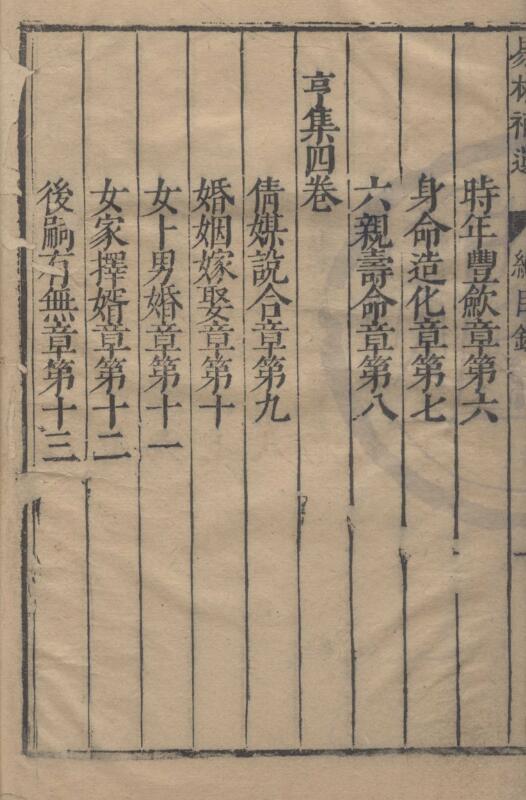 易林補遺 總目錄 一
時年豐歉章第六
身命造化章第七
六親壽命章第八
亨集四卷
倩媒說合章第九
婚姻嫁娶章第十
女卜男婚章第十一
女家擇婿章第十二
後嗣有無章第十三